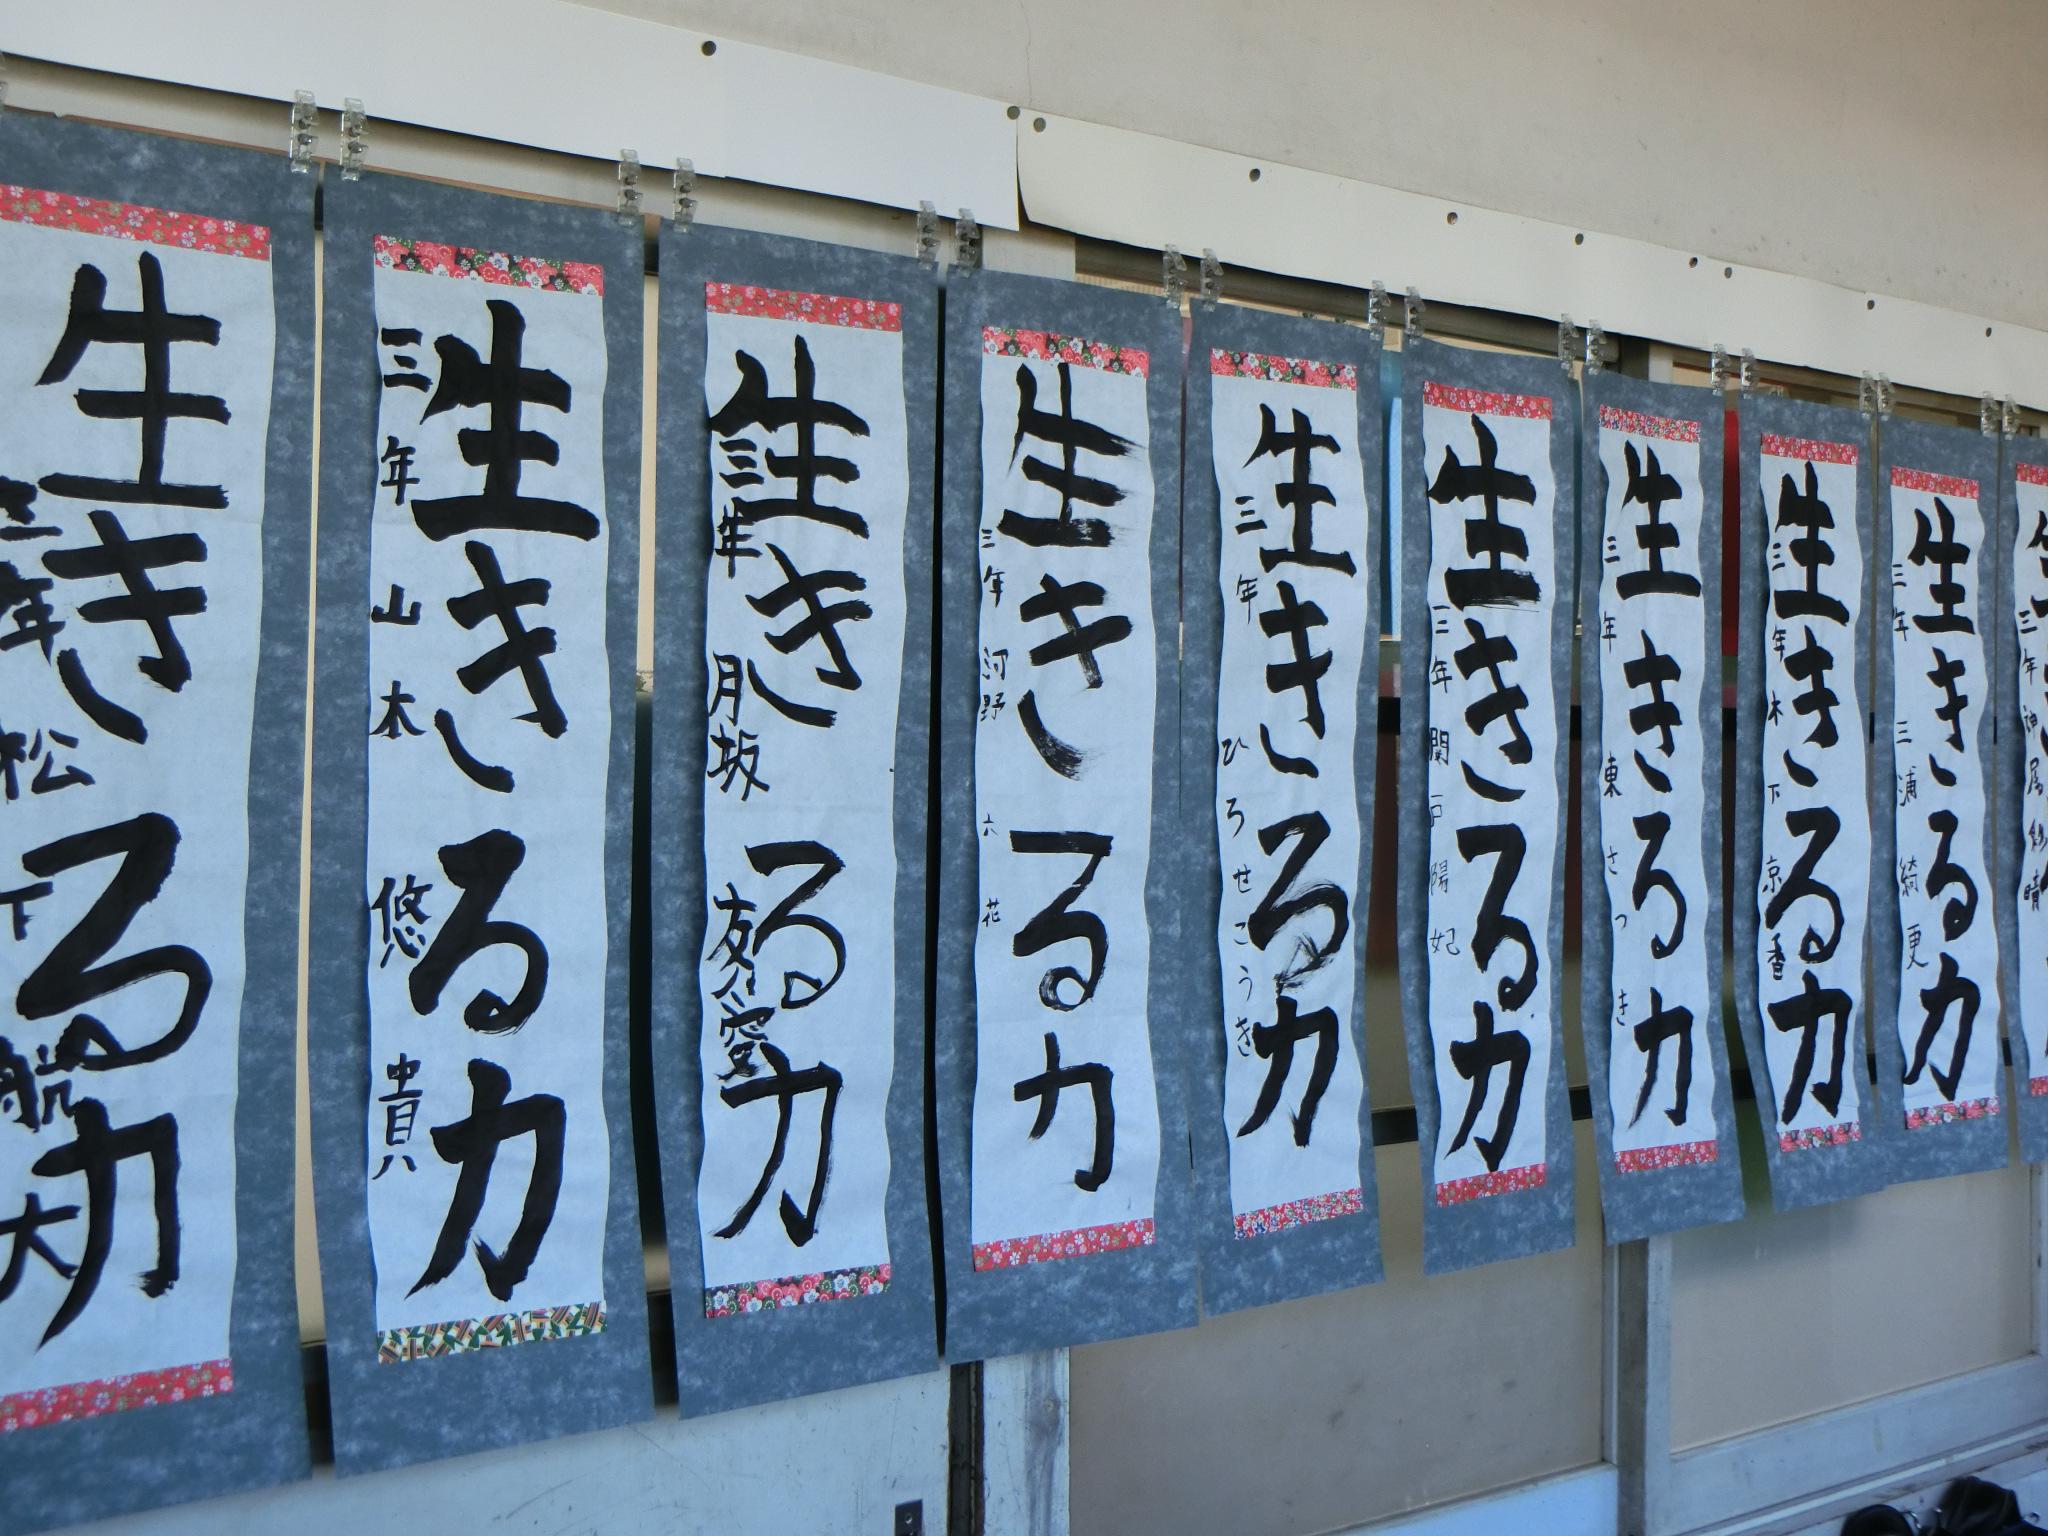 生きる力
三年 松下 船大
生きる力
三年 山木 悠貴
生きる力
三年 月坂 友愛
生きる力
三年 河野 六花
生きる力
三年 ひろせ こうき
生きる力
三年 関戸 陽妃
生きる力
三年 東 さつき
生きる力
三年 木下 京香
生きる力
三年 三浦 綺更
三年 神尾